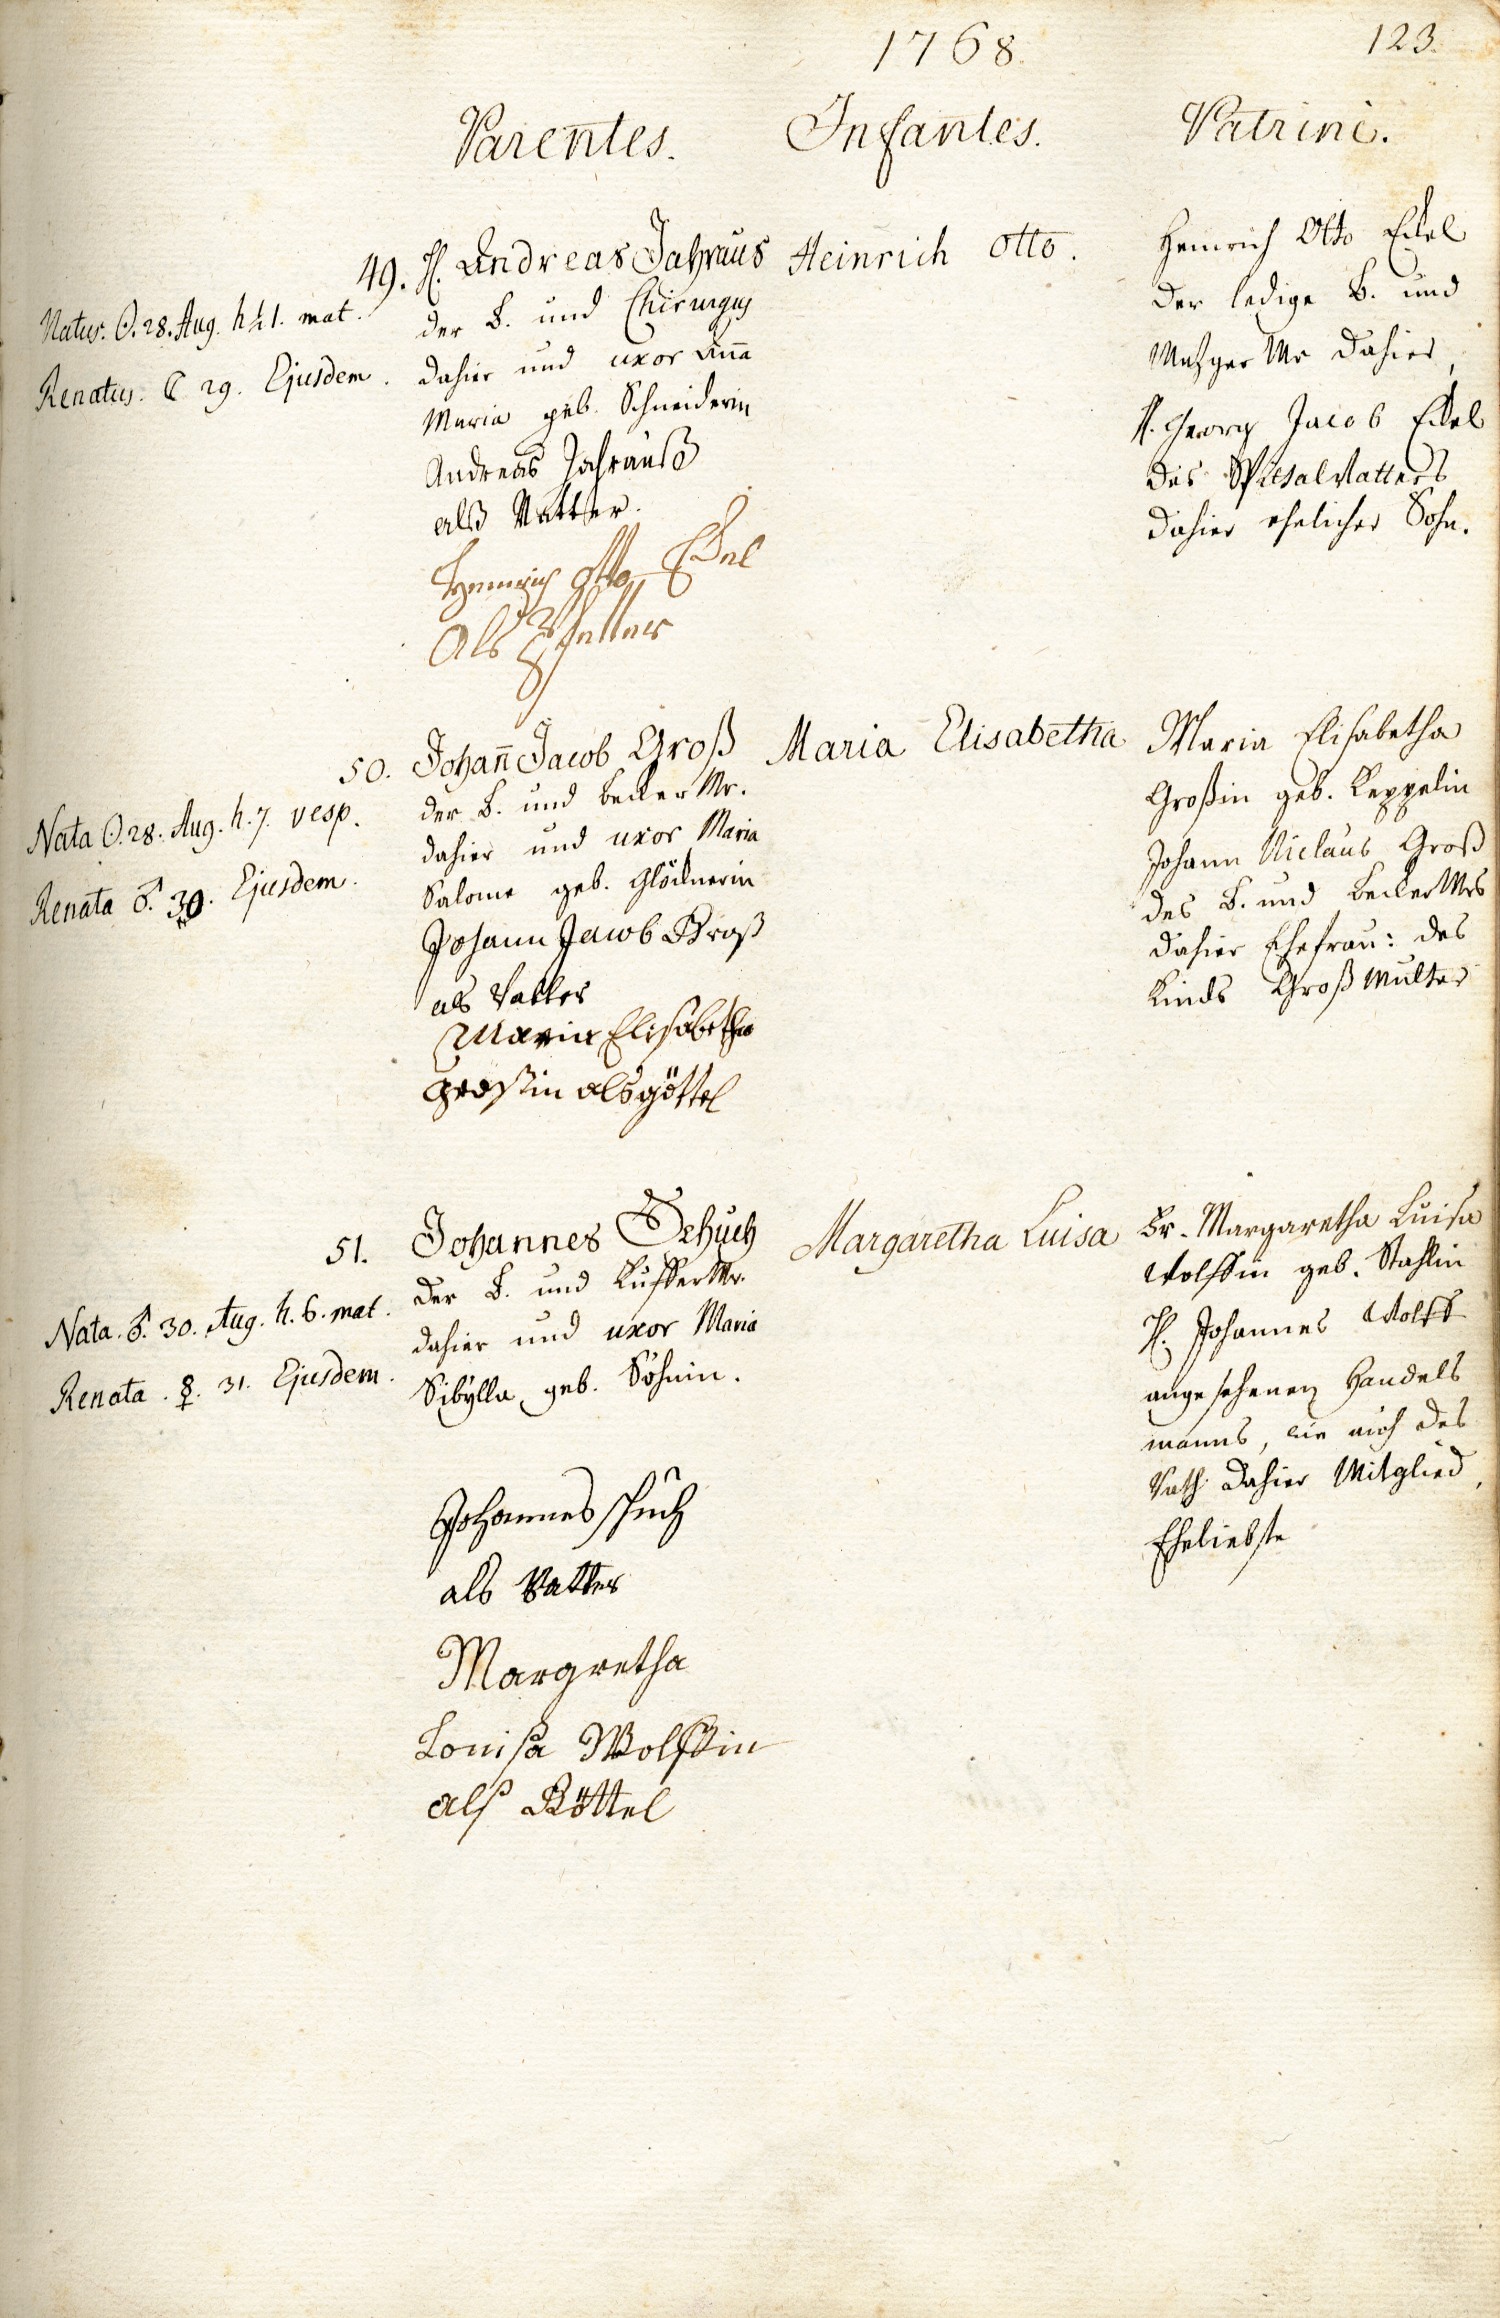 1768.
123.
Parentes.
Infantes.
Patrini.
49. H. Andreas Jahraus
der B. und Chirurgus
dahier und uxor Anna
Maria geb. Schneiderin
Andreas Jahrauß
alß Vatter.
Heinrich Otto Eckel
Als Pfetter
Natus. ☉. 28. Aug. h ½ 1. mat.
Renatus. ☾ 29. Ejusdem.
Heinrich Otto.
Heinrich Otto Eckel
der ledige B. und
Metzger Mr dahier,
H. Georg Jacob Eckel
des Spitalvatters
dahier ehelicher Sohn.
50. Johann̄ Jacob Groß
der B. und Becker Mr.
dahier und uxor Maria
Salome geb. Glöcknerin
Johann Jacob Groß
als Vatter
Maria Elisabetha
Großin als göttel
Nata ☉. 28. Aug. h. 7. vesp.
Renata ♂. 30. Ejusdem.
Maria Elisabetha
Maria Elisabetha
Großin geb. Keppelin
Johann Niclaus Groß
des B. und Becker Mrs
dahier Ehefrau: des
Kinds Groß Mutter
51. Johannes Schuch
der B. und Kuffer Mr.
dahier und uxor Maria
Sibÿlla geb. Söhnin.
Johannes schuch
als Vatter
Margretha
Louisa Wolffin
alß Göttel
Nata. ♂. 30. Aug. h. 6. mat.
Renata. ☿. 31. Ejusdem.
Margaretha Luisa
Fr. Margaretha Luisa
Wolffin geb. Stahlin
H. Johannes Wolff
angesehenen Handels
manns, wie auch des
Rath dahier Mitglied,
Eheliebste